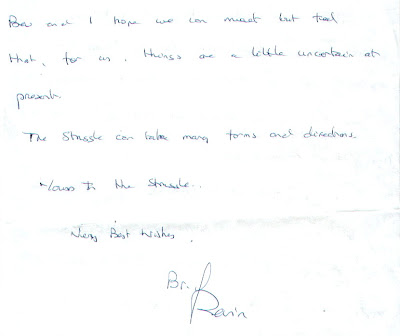 Bev and I hope we can meet but feel
that, for us, things are a little uncertain at
present.
The Struggle can take many forms and directions.
Yours in the Struggle..
Very Best Wishes,
Br.
Kevin